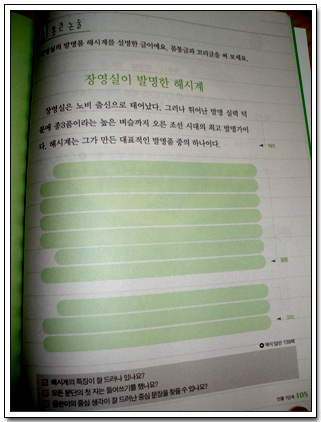 통큰 논술
장영실의 발명품 해시계를 설명한 글이에요. 몸통글과 꼬리글을 써 보세요.
장영실이 발명한 해시계
장영실은 노비 출신으로 태어났다. 그러나 뛰어난 발명 실력 덕
분에 종3품이라는 높은 벼슬까지 오른 조선 시대의 최고 발명가이
다. 해시계는 그가 만든 대표적인 발명품 중의 하나이다.
예시 답안 139쪽
해시계의 특징이 잘 드러나 있나요?
모든 문단의 첫 자는 들어쓰기를 했나요?
글쓴이의 중심 생각이 잘 드러난 중심 문장을 찾을 수 있나요?
105